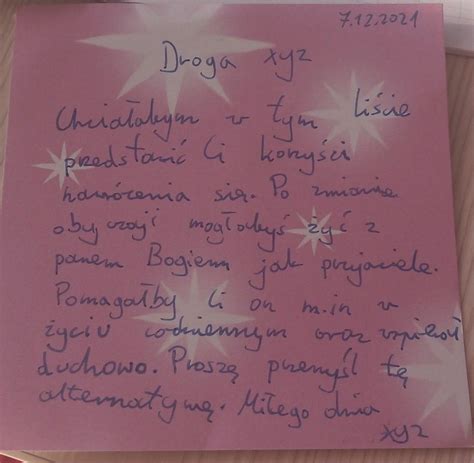 7.12.2021
Droga xyz
Chciałabym w tym liście
przedstawić Ci korzyści
nawrócenia się. Po zmianie
obyczaji mogłabyś żyć z
panem Bogiem jak przyjaciele.
Pomagałby Ci on m.in w
życiu codziennym oraz wspierał
duchowo. Proszę przemyśl tę
alternatywę. Miłego dnia
xyz